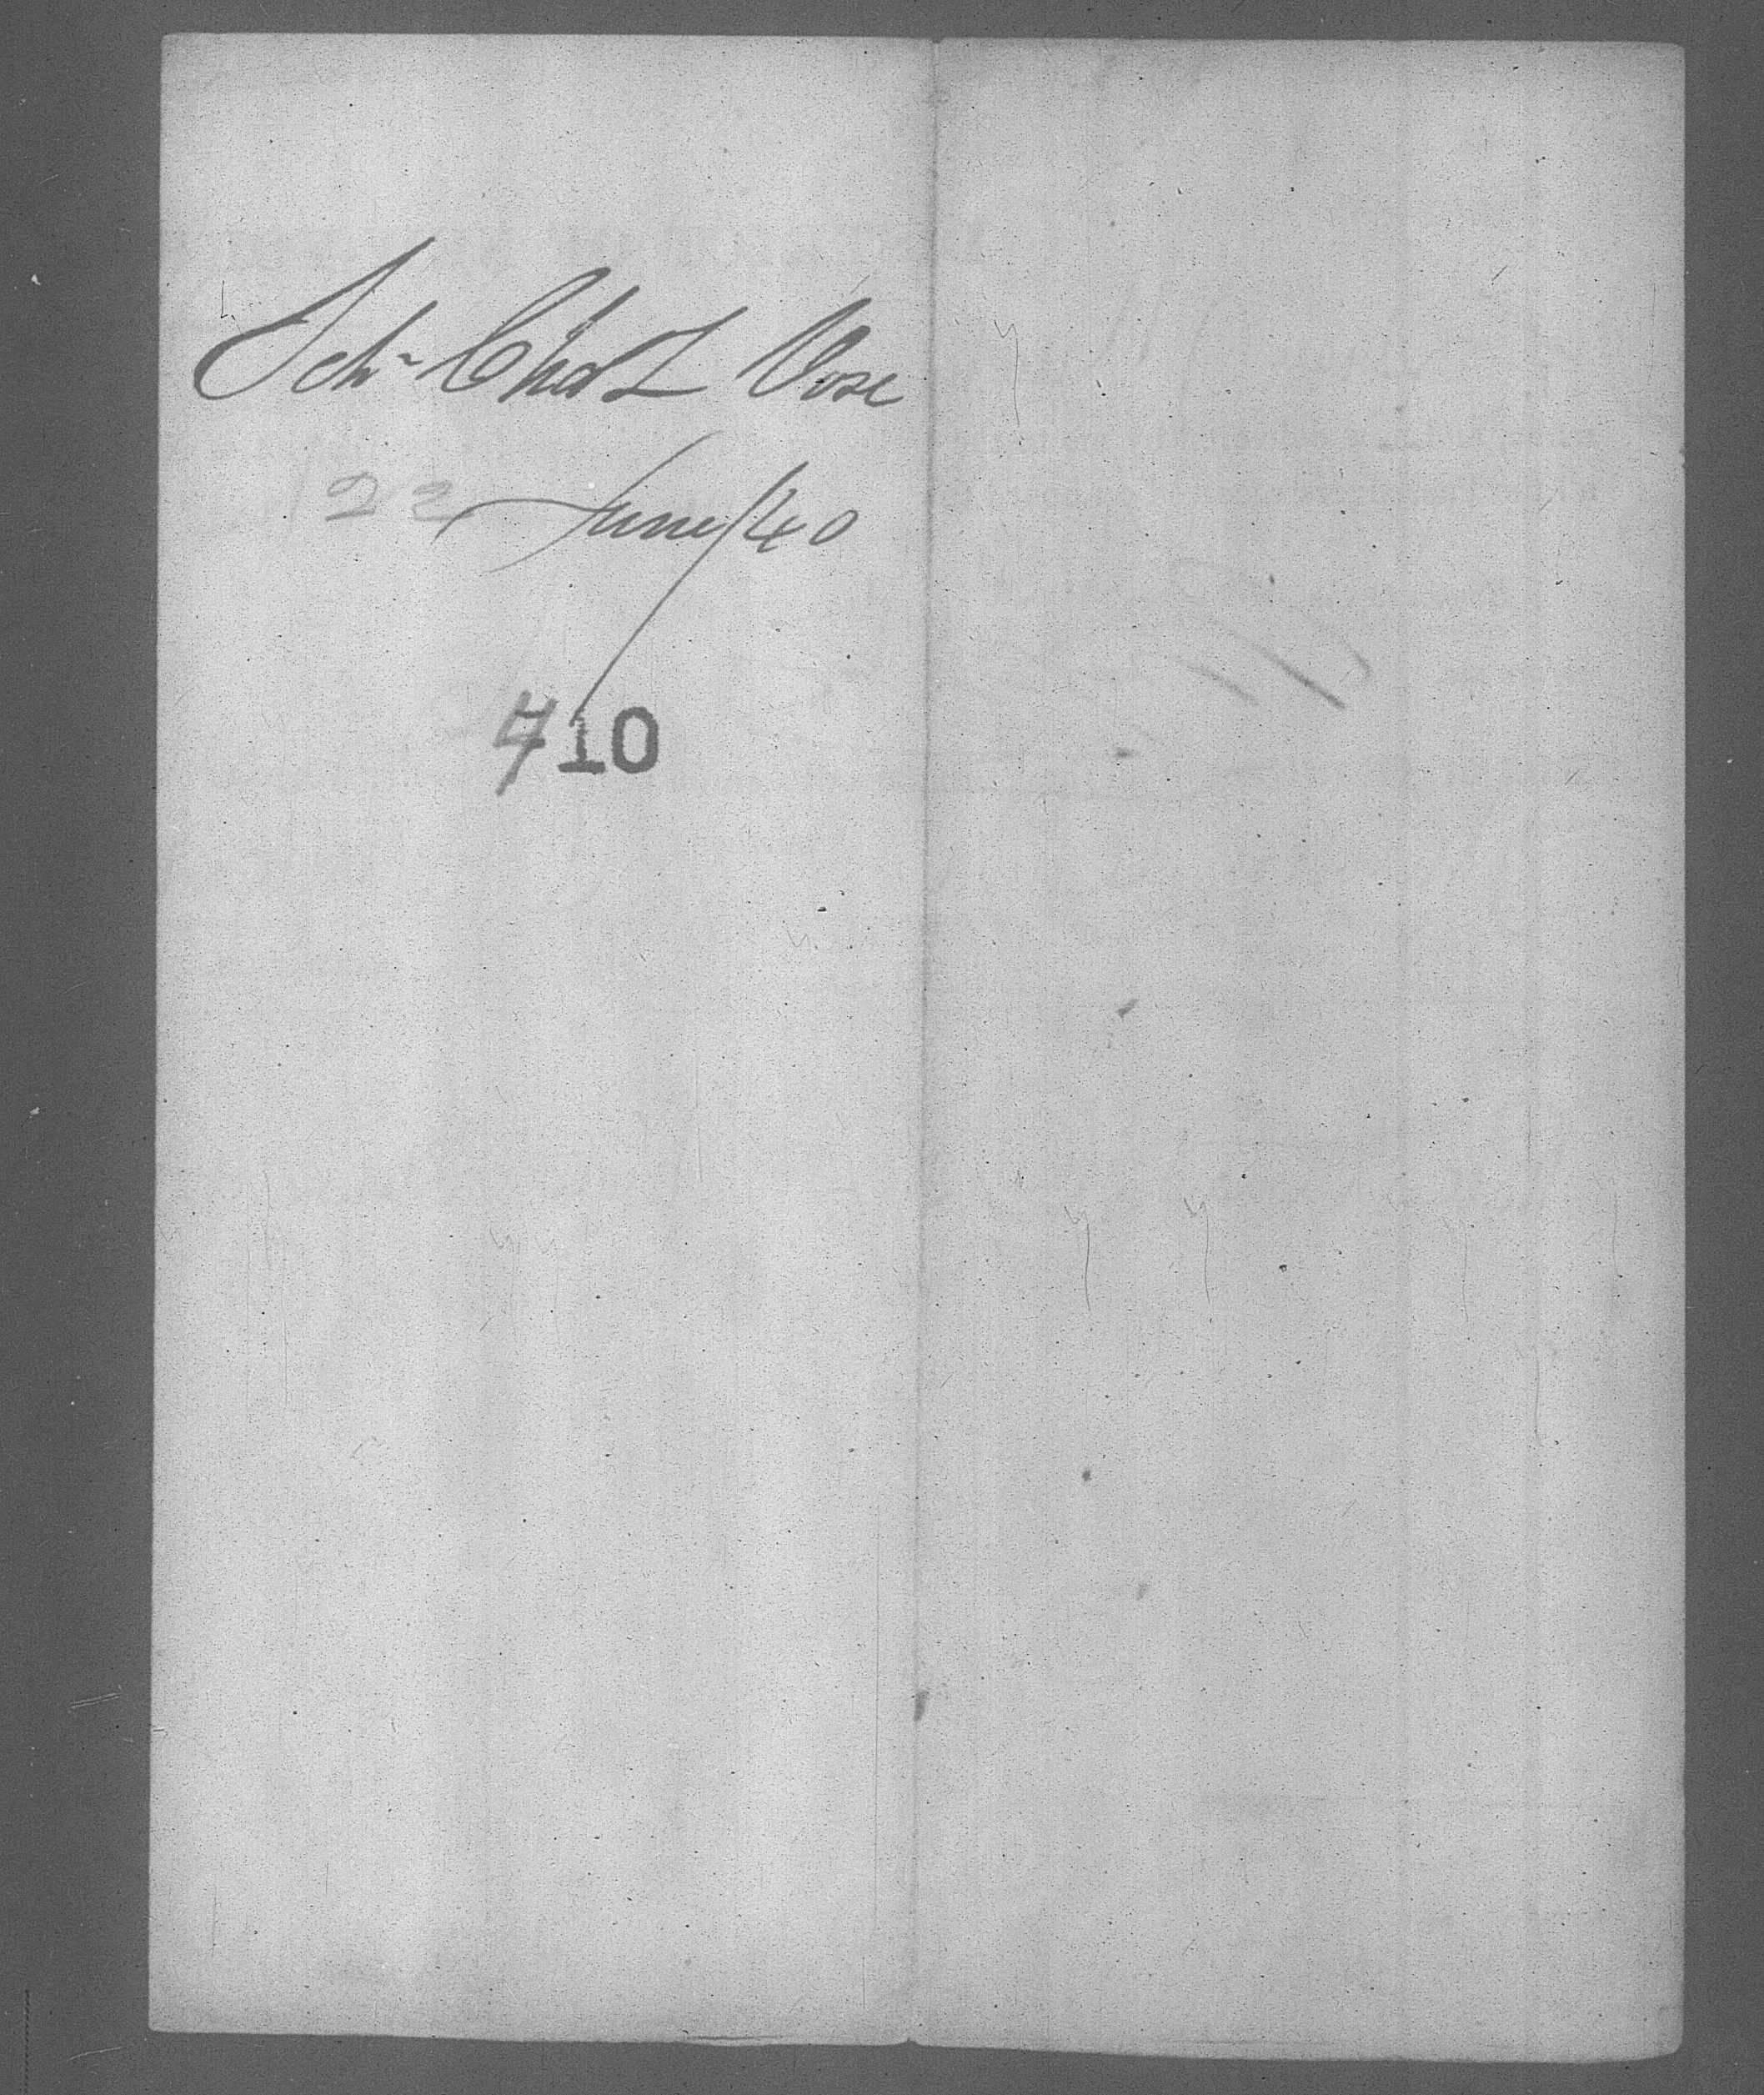 Schr Chas L Vose
22 June/40
710